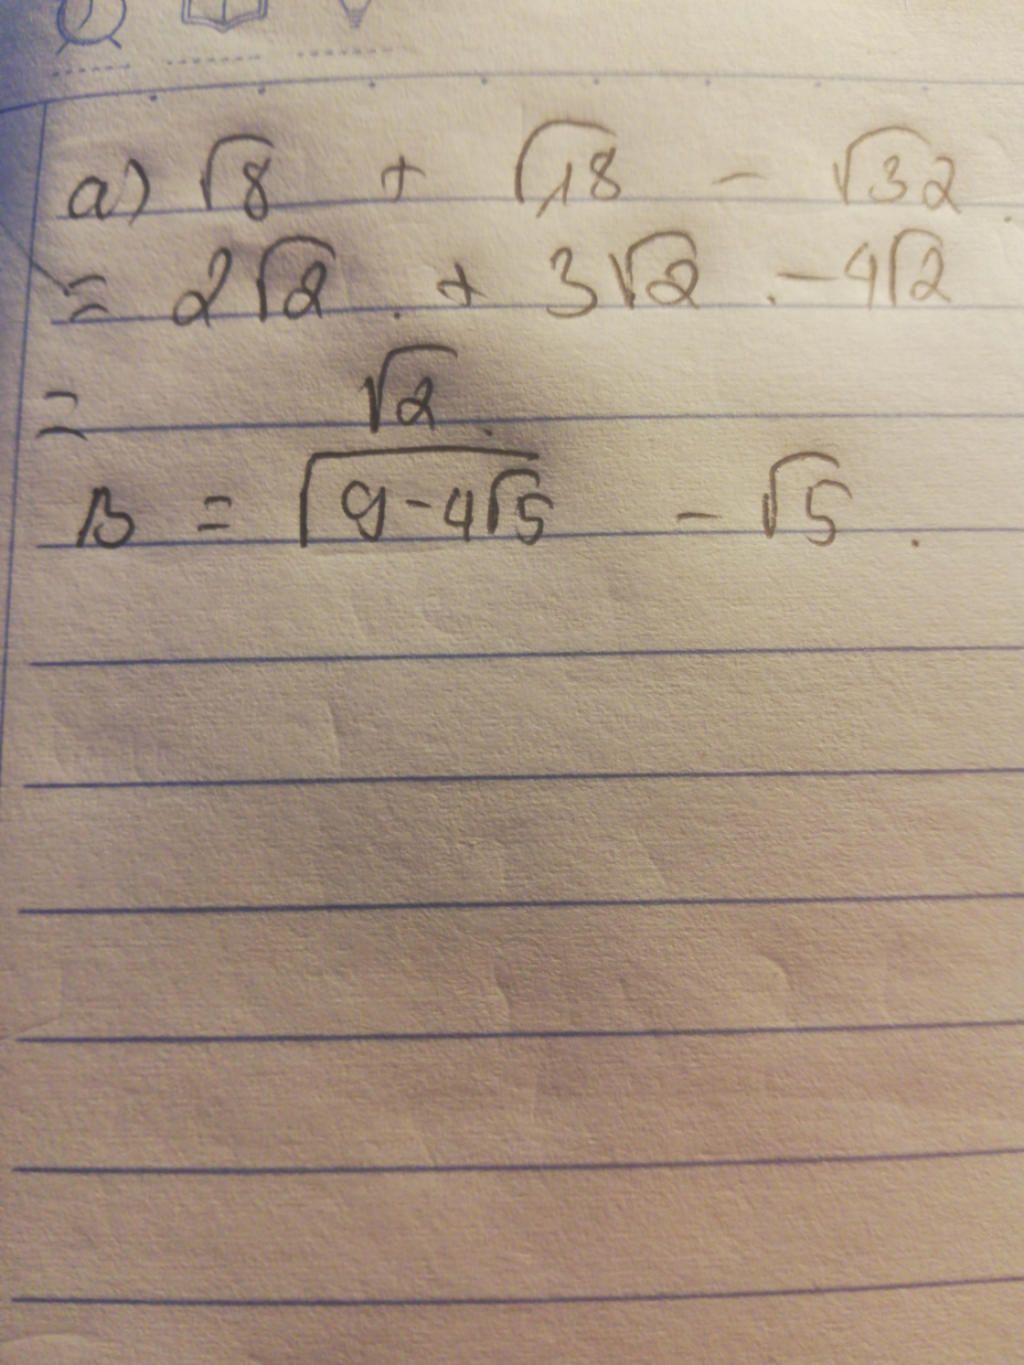 a) √8 + √18 - √32
= 2√2 . + 3√2 . - 4√2
= √2 .
B = √(9-4√5) - √5 .